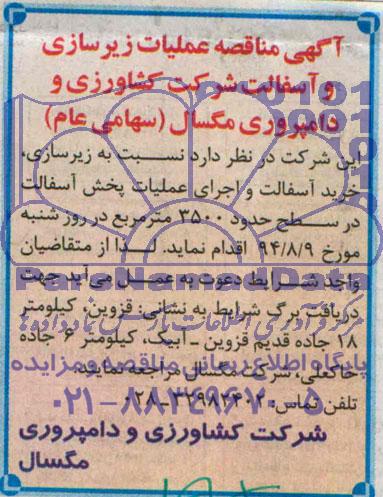 آگهی مناقصه عملیات زیرسازی
و آسفالت شرکت کشاورزی و
دامپروری مگسال (سهامی عام)
این شرکت در نظر دارد نسبت به زیرسازی،
خرید آسفالت و اجرای عملیات پخش آسفالت
در سطح حدود ۳۵۰۰ مترمربع در روز شنبه
مورخ ۹۴/۸/۹ اقدام نماید. لذا از متقاضیان
واجد شرایط دعوت به عمل می‌آید جهت
دریافت برگ شرایط به نشانی: قزوین، کیلومتر
۱۸ جاده قدیم قزوین - آبیک، کیلومتر ۶ جاده
خاکعلی، شرکت مگسال مراجعه نمایند.
تلفن تماس: ۳۲۹۸۲۴۰۲-۰۲۸
شرکت کشاورزی و دامپروری
مگسال
ParsNamadData
مرکز فرآوری اطلاعات پارس نماد داده‌ها
پایگاه اطلاع رسانی مناقصه و مزایده
۰۲۱-۸۸۳۴۹۶۷۰-۵